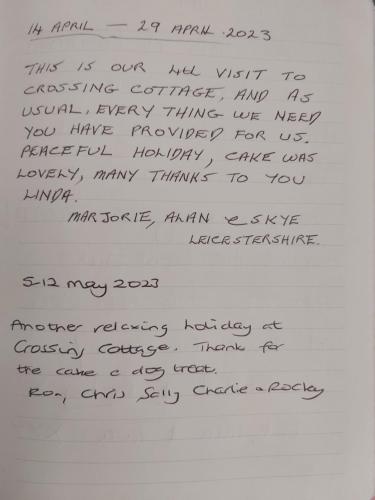 14 APRIL — 29 APRIL . 2023
THIS IS OUR 4th VISIT TO
CROSSING COTTAGE, AND AS
USUAL, EVERY THING WE NEED
YOU HAVE PROVIDED FOR US.
PEACEFUL HOLIDAY, CAKE WAS
LOVELY, MANY THANKS TO YOU
LINDA.
MARJORIE, ALAN & SKYE
LEICESTERSHIRE.
5-12 May 2023
Another relaxing holiday at
Crossing Cottage. Thank for
the cake & dog treat.
Ron, Chris Sally Charlie & Rocky